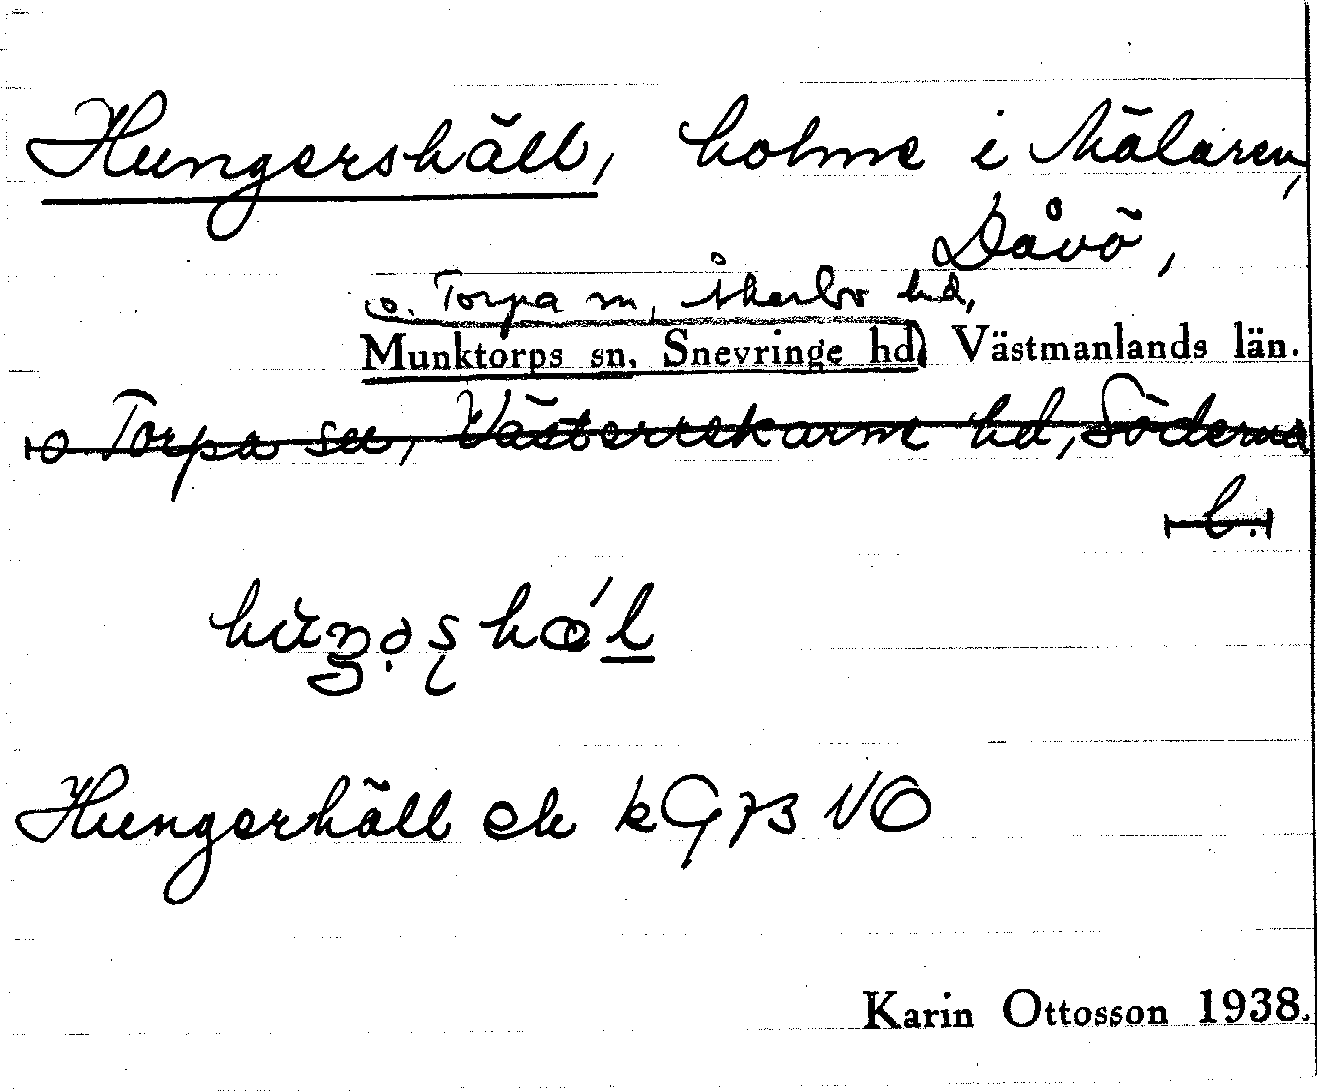 Hungershäll, holme i Mälaren,
Dåvö,
o. Torpa sn, Åkerbo hd,
Munktorps sn, Snevringe hd, Västmanlands län.
o Torpa sn, Västerrekarne hd, Söderma
l.
Hungerhäll ek kG 73 NO
Karin Ottosson 1938.